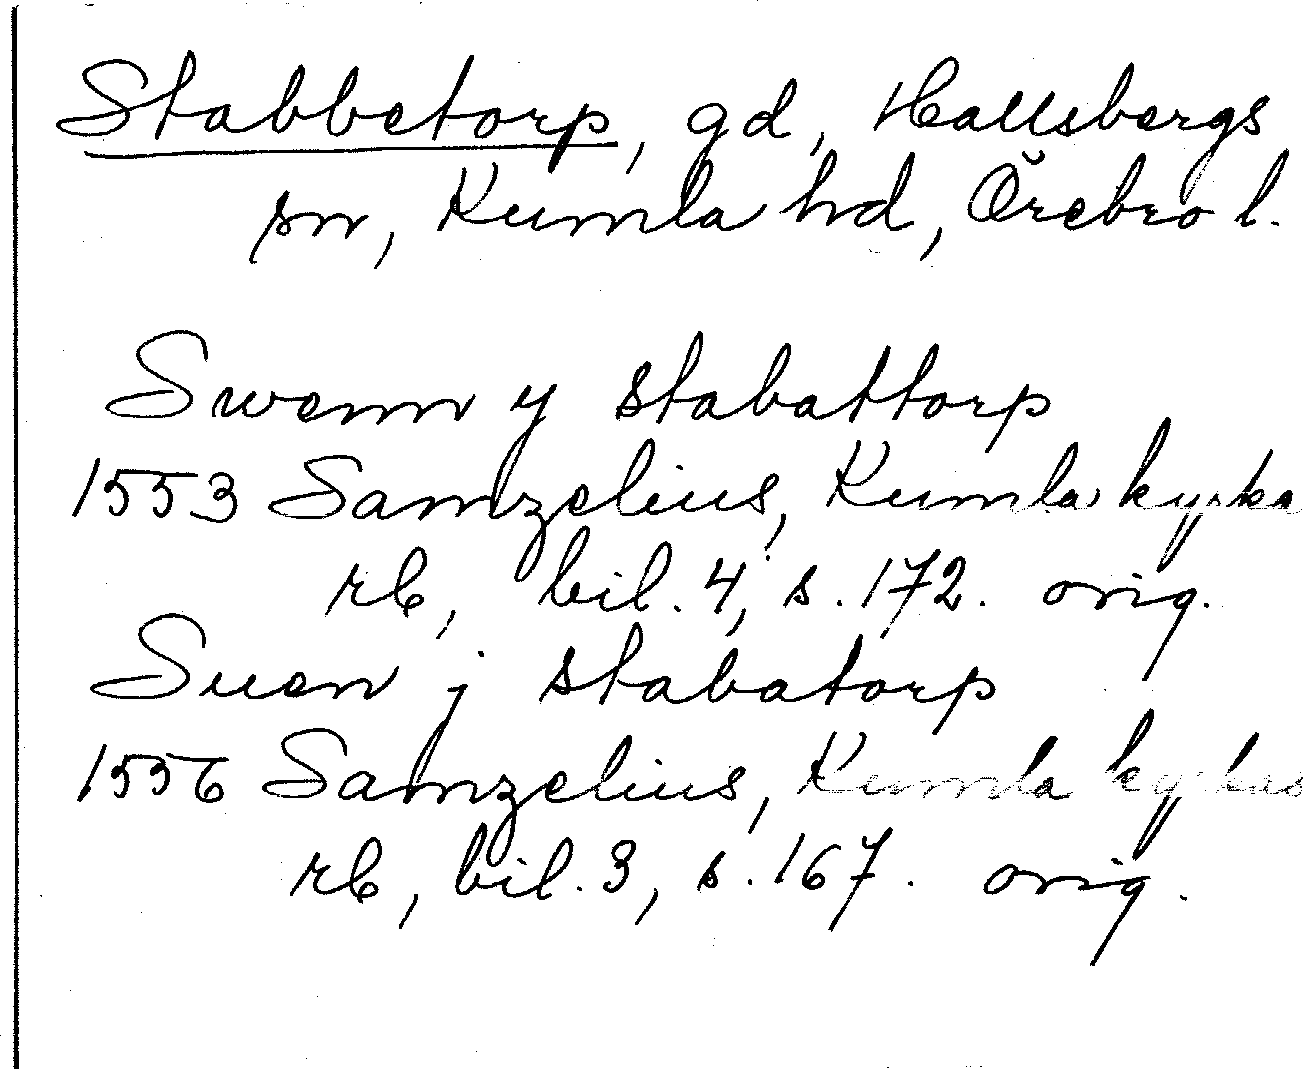 Stabbetorp, gd, Hallsbergs
sn, Kumla hd, Örebro l.
Swenn y stabattorp
1553 Samzelius, Kumla kyrka
rb, bil. 4, s. 172. orig.
Suen j stabatorp
1556 Samzelius, Kumla kyrkas
rb, bil. 3, s. 167. orig.